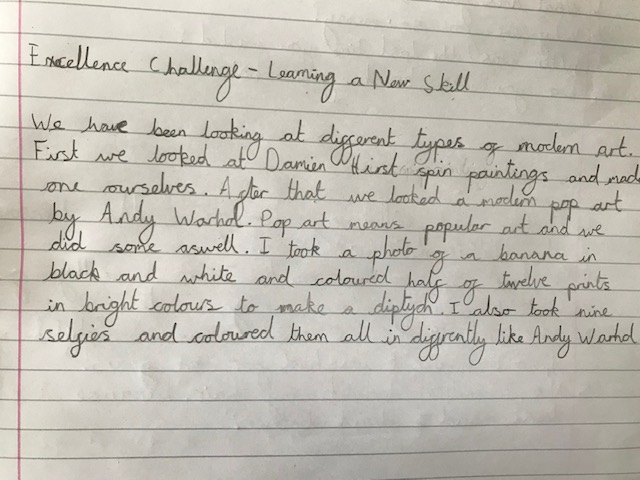 Excellence Challenge - Learning a New Skill
We have been looking at different types of modern art.
First we looked at Damien Hirst spin paintings and made
one ourselves. After that we looked a modern pop art
by Andy Warhol. Pop art means popular art and we
did some aswell. I took a photo of a banana in
black and white and coloured half of twelve prints
in bright colours to make a diptych. I also took nine
selfies and coloured them all in diffrently like Andy Warhol